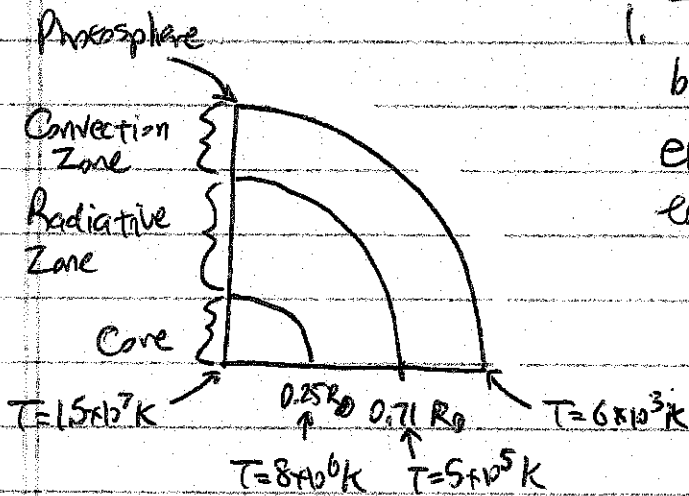 Photosphere
1.
Convection
Zone
b
en
Radiative
Zone
Core
T=1.5×10⁷K
0.25R⊙
0.71 R⊙
T=6×10³K
T=8×10⁶K
T=5×10⁵K